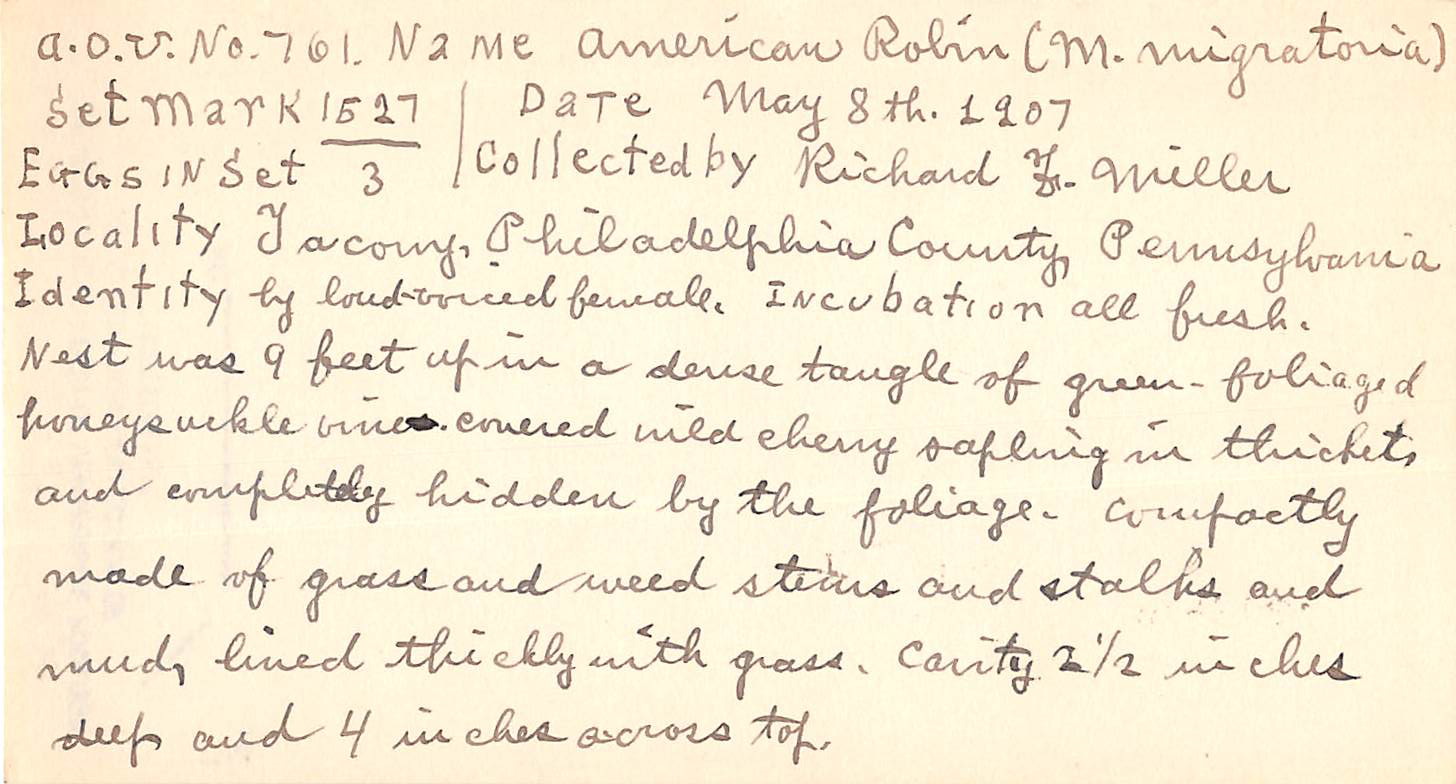 A.O.U. No. 761. Name American Robin (M. migratoria)
Set Mark 1527 | Date May 8th. 1907
Eggs in Set 3 | Collected by Richard F. Miller
Locality Tacony, Philadelphia County, Pennsylvania
Identity by loud-voiced female. Incubation all fresh.
Nest was 9 feet up in a dense tangle of green-foliaged
honeysuckle vine-covered wild cherry sapling in thicket,
and completely hidden by the foliage. Compactly
made of grass and weed stems and stalks and
mud, lined thickly with grass. Cavity 2 1/2 inches
deep and 4 inches across top.